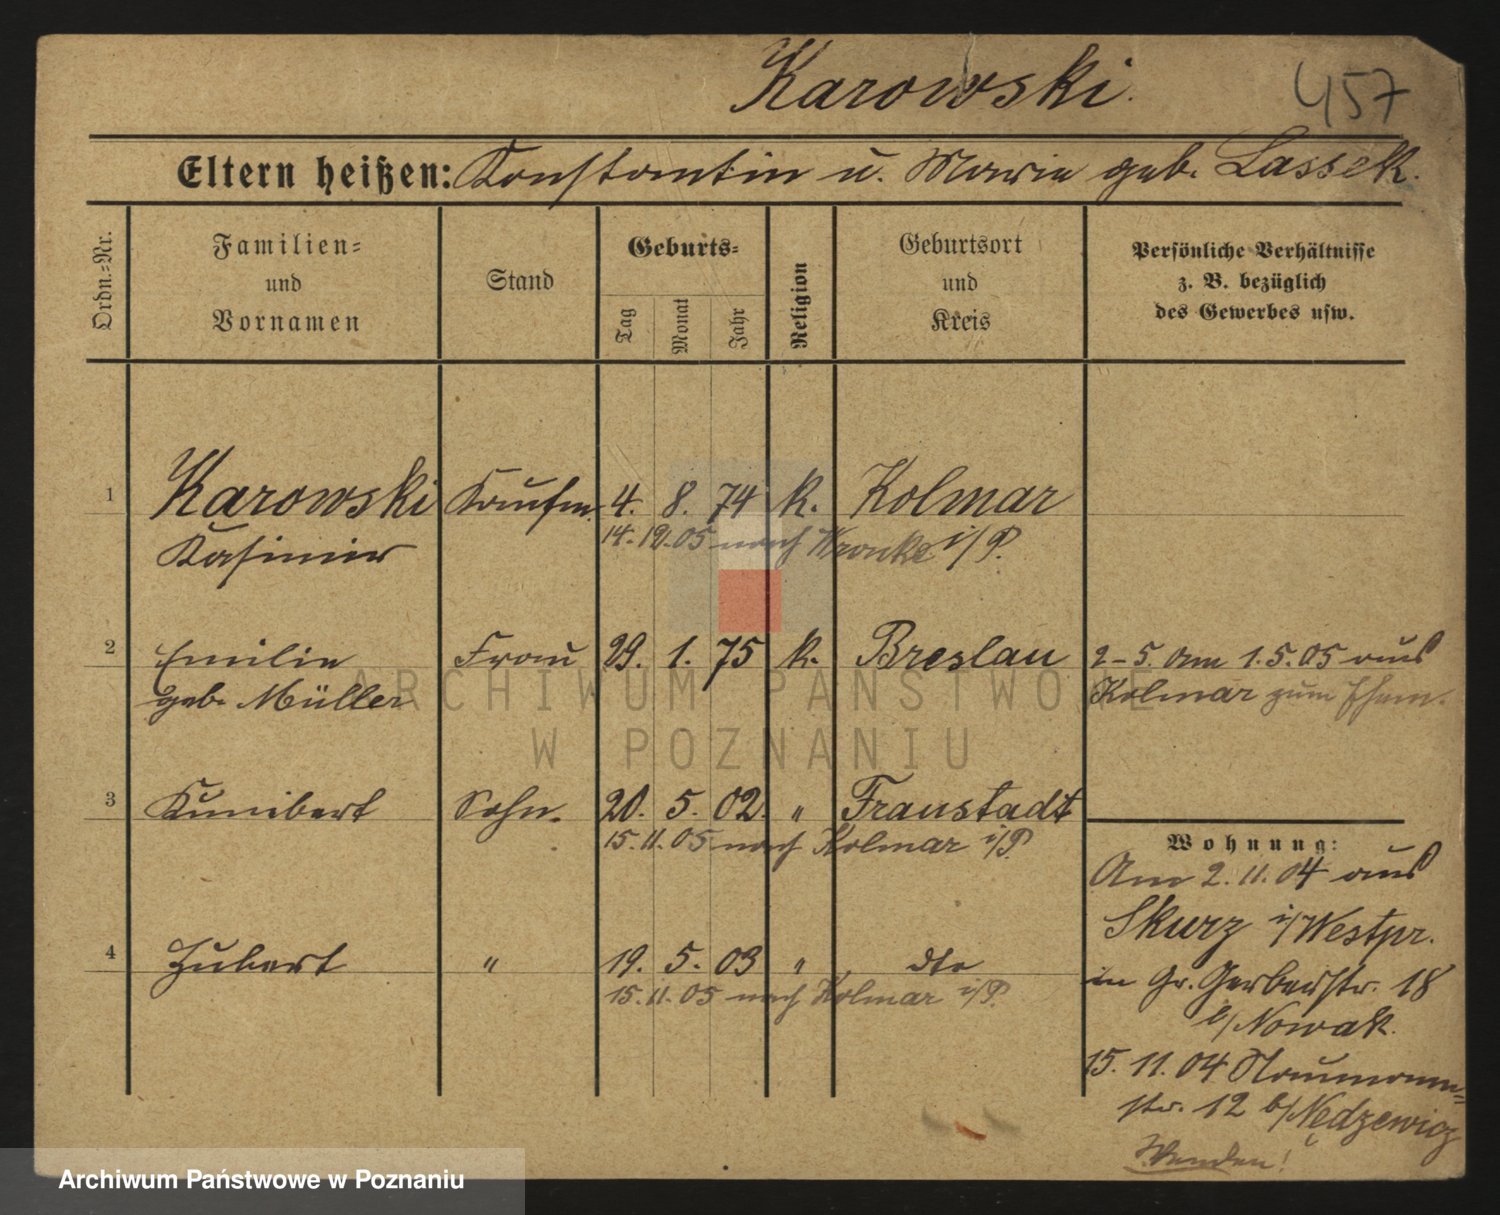 Karowski.
457
Eltern heißen: Konstantin u. Marie geb. Lassek.
Ordn.-Nr.
Familien-
und
Vornamen
Stand
Geburts-
Tag
Monat
Jahr
Religion
Geburtsort
und
Kreis
Persönliche Verhältnisse
z. B. bezüglich
des Gewerbes usw.
1 Karowski Kaufm. 4. 8. 74 k. Kolmar
Kasimir 14. 12. 05 nach Wronke i/P.
2 Emilie Frau 29. 1. 75 k. Breslau 2-5. am 1.5.05 aus
geb. Müller Kolmar zum Ehem.
3 Kunibert Sohn. 20. 5. 02. " Fraustadt
15. 11. 05 nach Kolmar i/P.
4 Hubert " 19. 5. 03 " dto
15. 11. 05 nach Kolmar i/P.
Wohnung:
Am 2. 11. 04 aus
Skurz i/Westpr.
in Gr. Gerberstr. 18
b/Nowak.
15. 11. 04 Naumann-
str. 12 b/Nędzewicz
Wenden!
ARCHIWUM PAŃSTWOWE
W POZNANIU
Archiwum Państwowe w Poznaniu